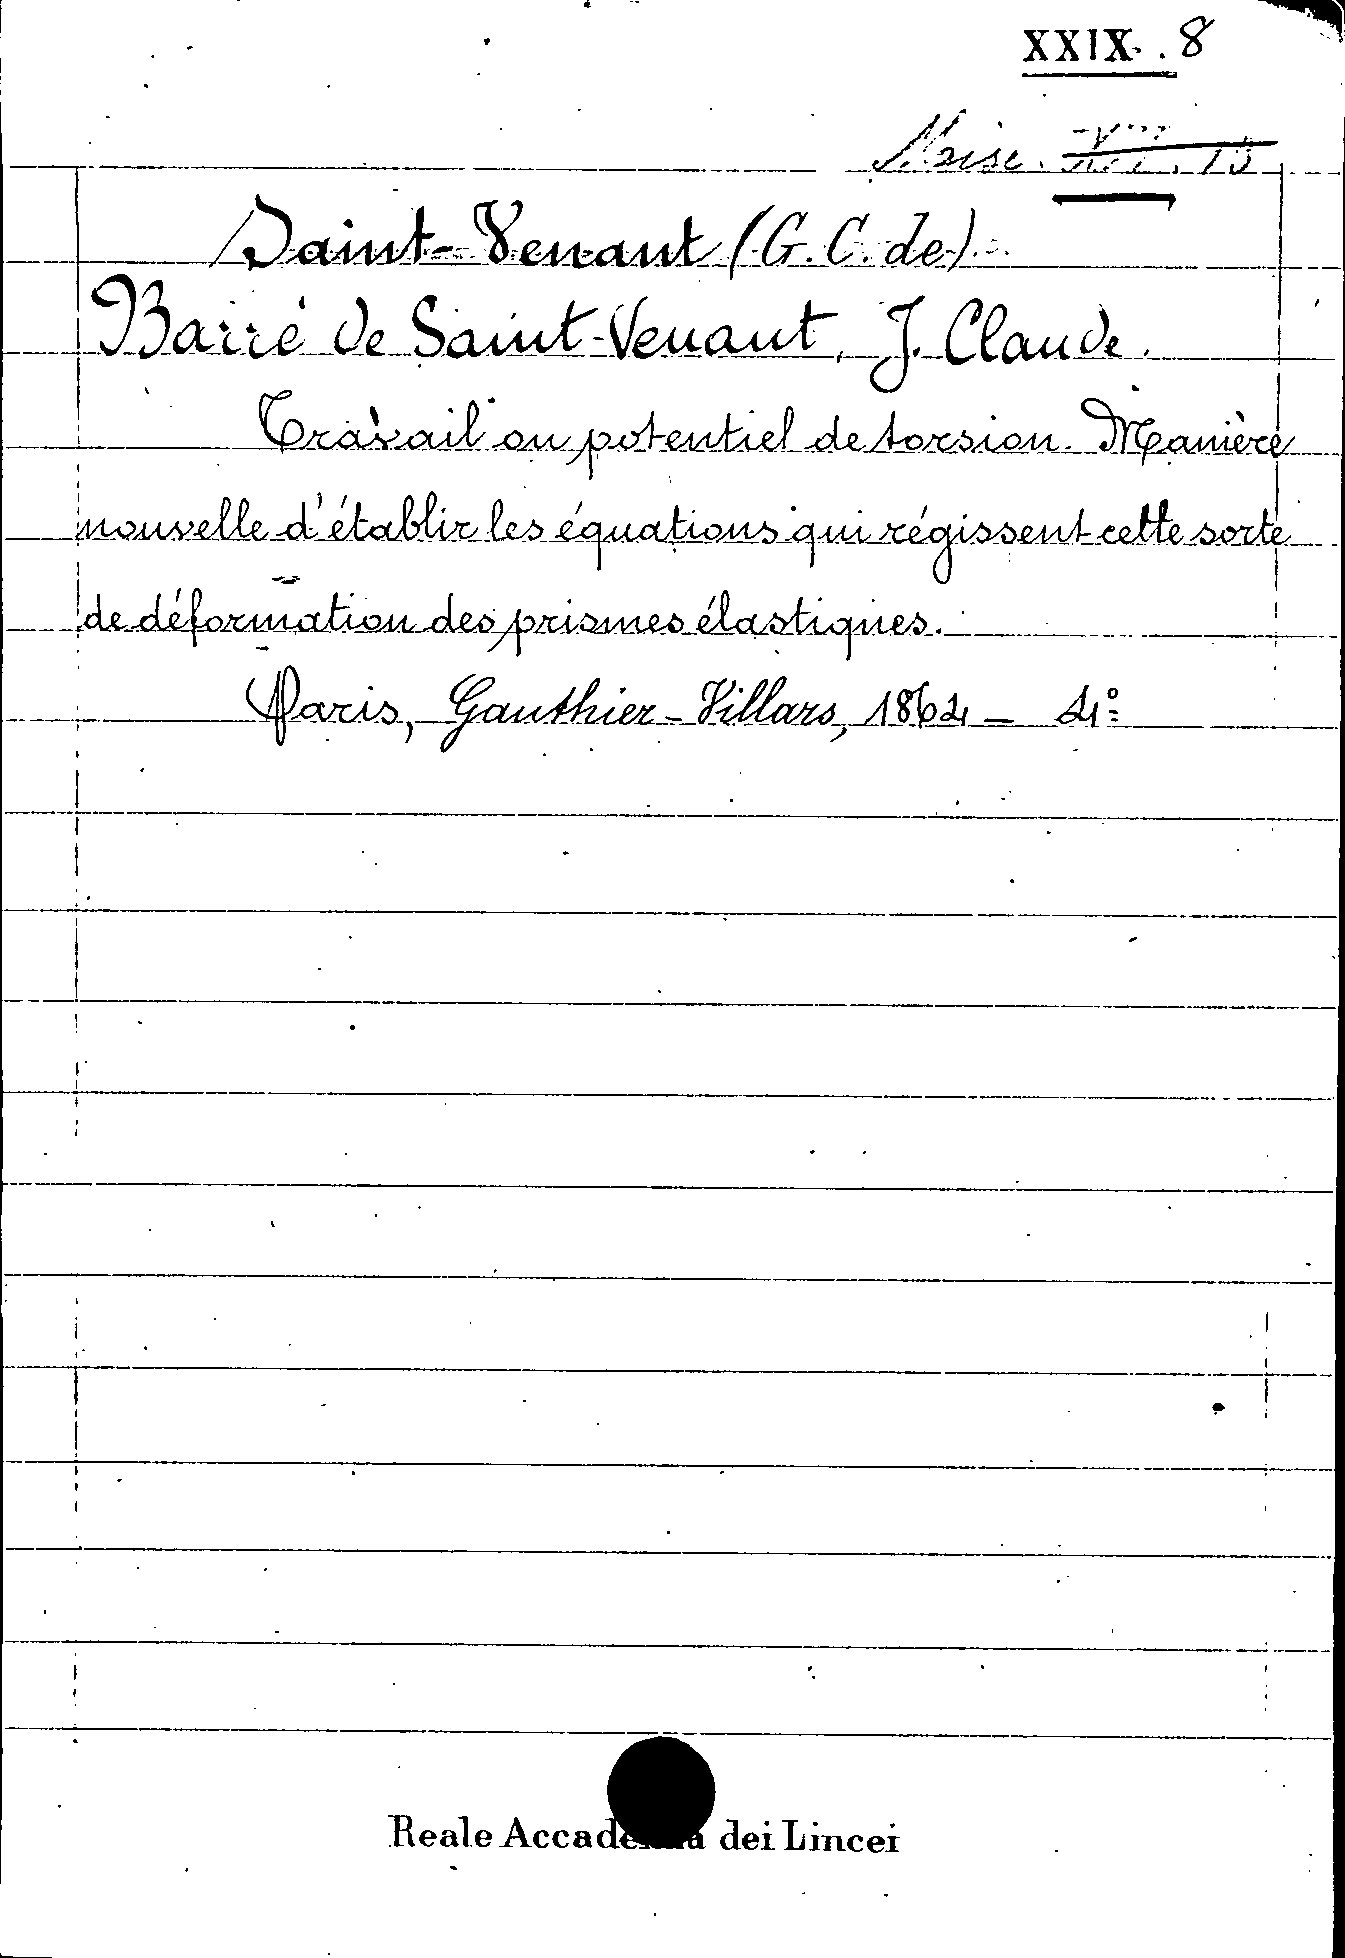 XXIX. 8
Misc. 13
Saint-Venant (G. C. de).
Barré de Saint-Venant, J. Claude.
Travail ou potentiel de torsion. Manière
nouvelle d'établir les équations qui régissent cette sorte
de déformation des prismes élastiques.
Paris, Gauthier-Villars, 1864 - 4º
Reale Accademia dei Lincei